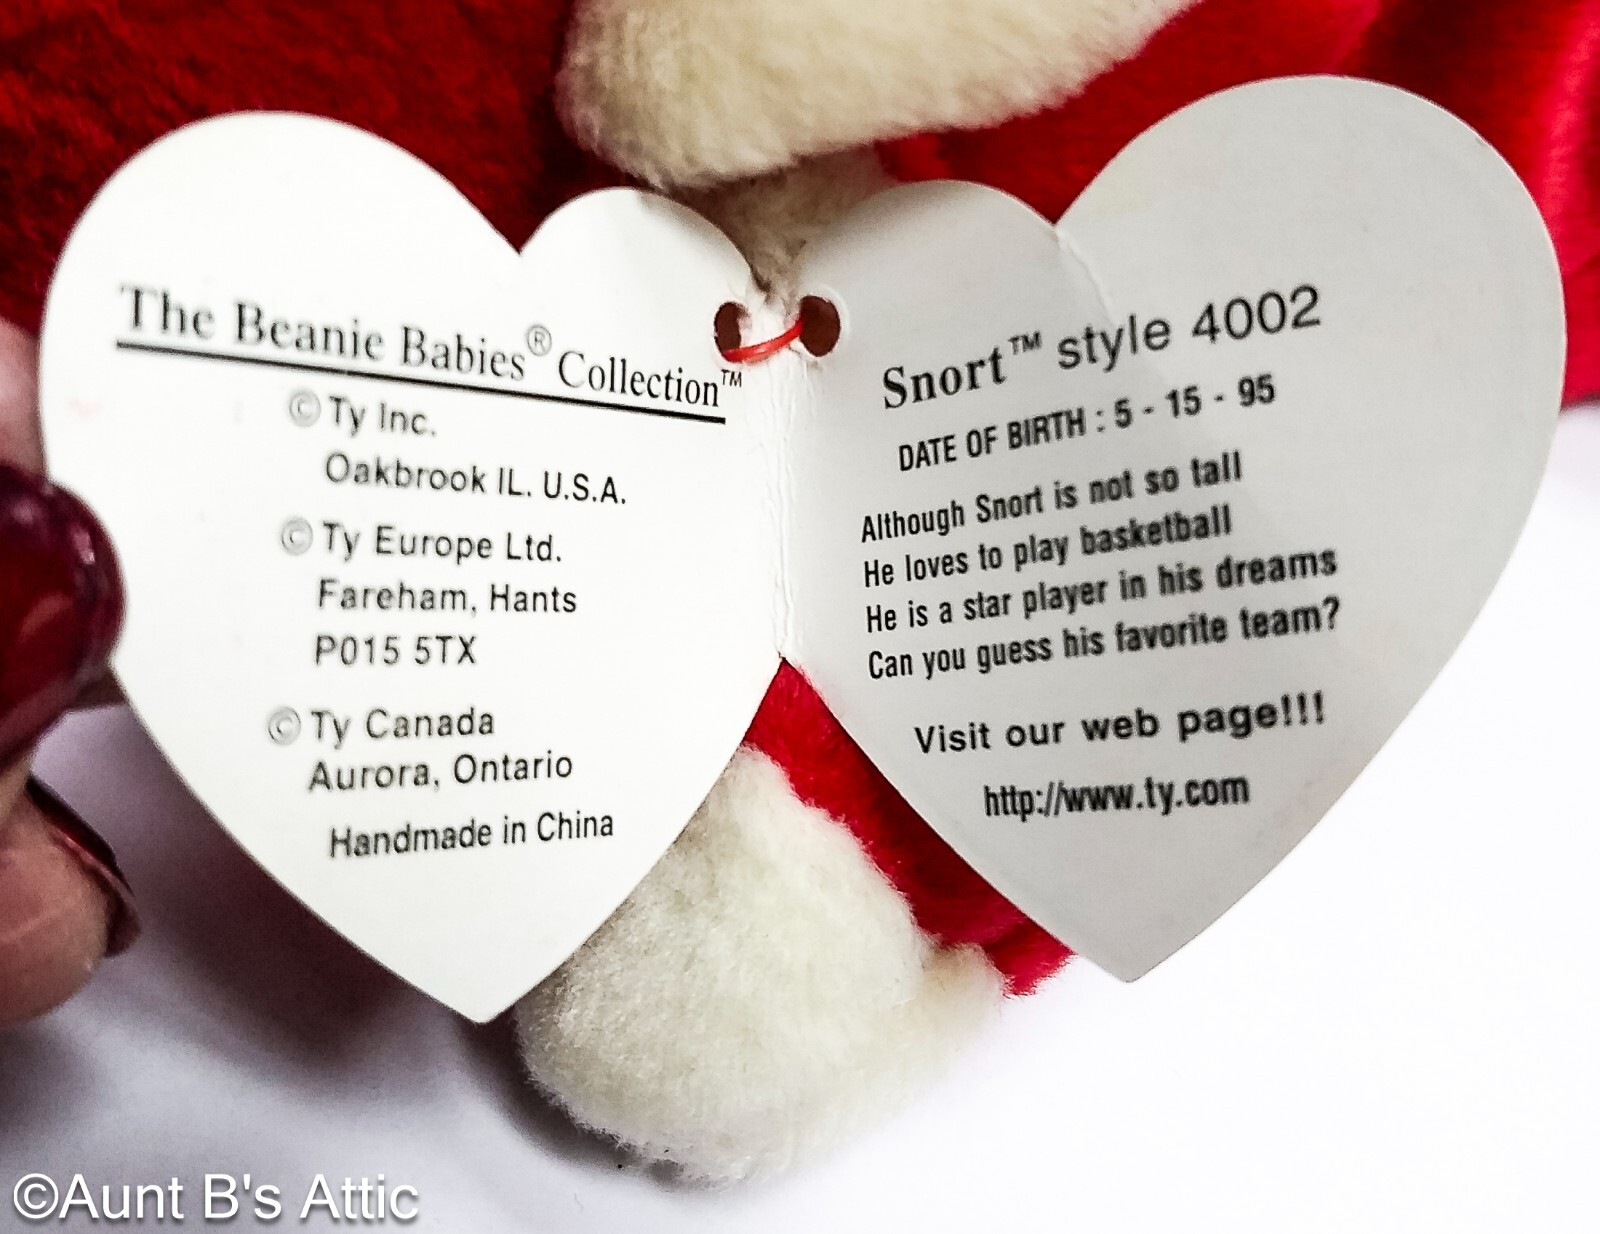 The Beanie Babies® Collection™
© Ty Inc.
Oakbrook IL. U.S.A.
© Ty Europe Ltd.
Fareham, Hants
P015 5TX
© Ty Canada
Aurora, Ontario
Handmade in China
Snort™ style 4002
DATE OF BIRTH : 5 - 15 - 95
Although Snort is not so tall
He loves to play basketball
He is a star player in his dreams
Can you guess his favorite team?
Visit our web page!!!
http://www.ty.com
©Aunt B's Attic